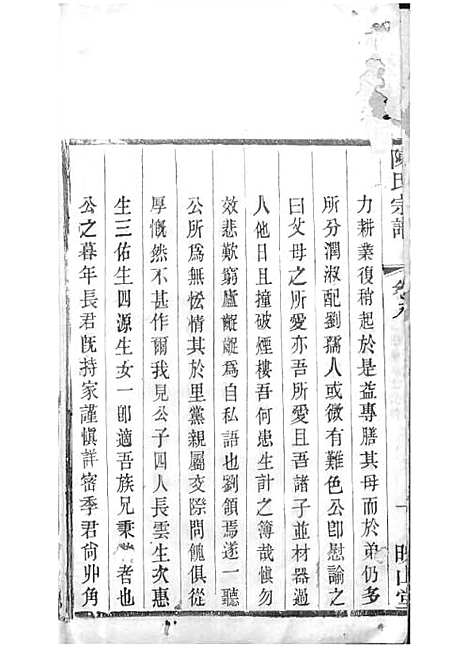 陳氏宗譜
力耕業復稍起於是益專膳其母而於弟仍多
所分潤淑配劉孺人或微有難色公卽慰諭之
曰父母之所愛亦吾所愛且吾諸子並材器過
人他日且撞破煙樓吾何患生計之簿哉愼勿
效悲歎窮廬齷齪爲自私語也劉頷焉遂一聽
公所爲無忮情其於里黨親屬交際問餽俱從
厚慨然不甚作爾我見公子四人長雲生次惠
生三佑生四源生女一卽適吾族兄秉者也
公之暮年長君旣持家謹愼詳密季君尙丱角